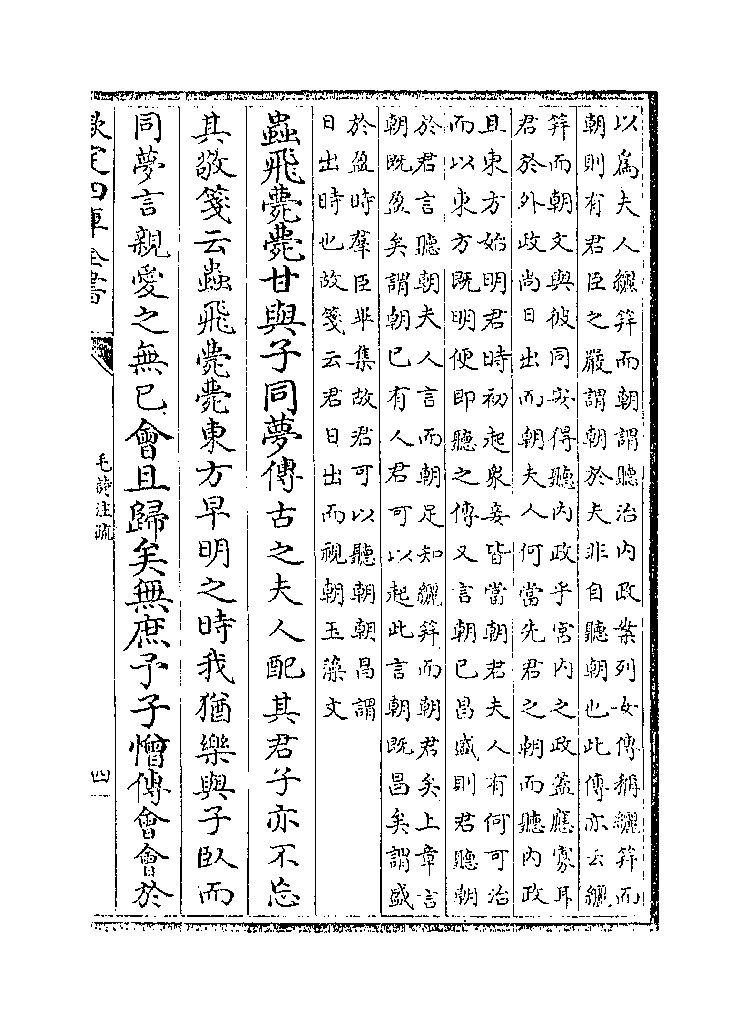 以為夫人纚笄而朝謂聽治内政案列女傳稱纚笄而
朝則有君臣之嚴謂朝於夫非自聽朝也此傳亦云纚
笄而朝文與彼同安得聽内政乎宮内之政蓋應寡耳
君於外政尚日出而朝夫人何當先君之朝而聽内政
且東方始明君時初起衆妾皆當朝君夫人有何可治
而以東方既明便即聽之傳又言朝已昌盛則君聽朝
於君言聽朝夫人言而朝足知纚笄而朝君矣上章言
朝既盈矣謂朝已有人君可以起此言朝既昌矣謂盛
於盈時羣臣畢集故君可以聽朝朝昌謂
日出時也故箋云君日出而視朝玉藻文
蟲飛薨薨甘與子同夢傳古之夫人配其君子亦不忘
其敬箋云蟲飛薨薨東方早明之時我猶樂與子臥而
同夢言親愛之無已會且歸矣無庶予子憎傳會會於
欽定四庫全書
毛詩注疏
四